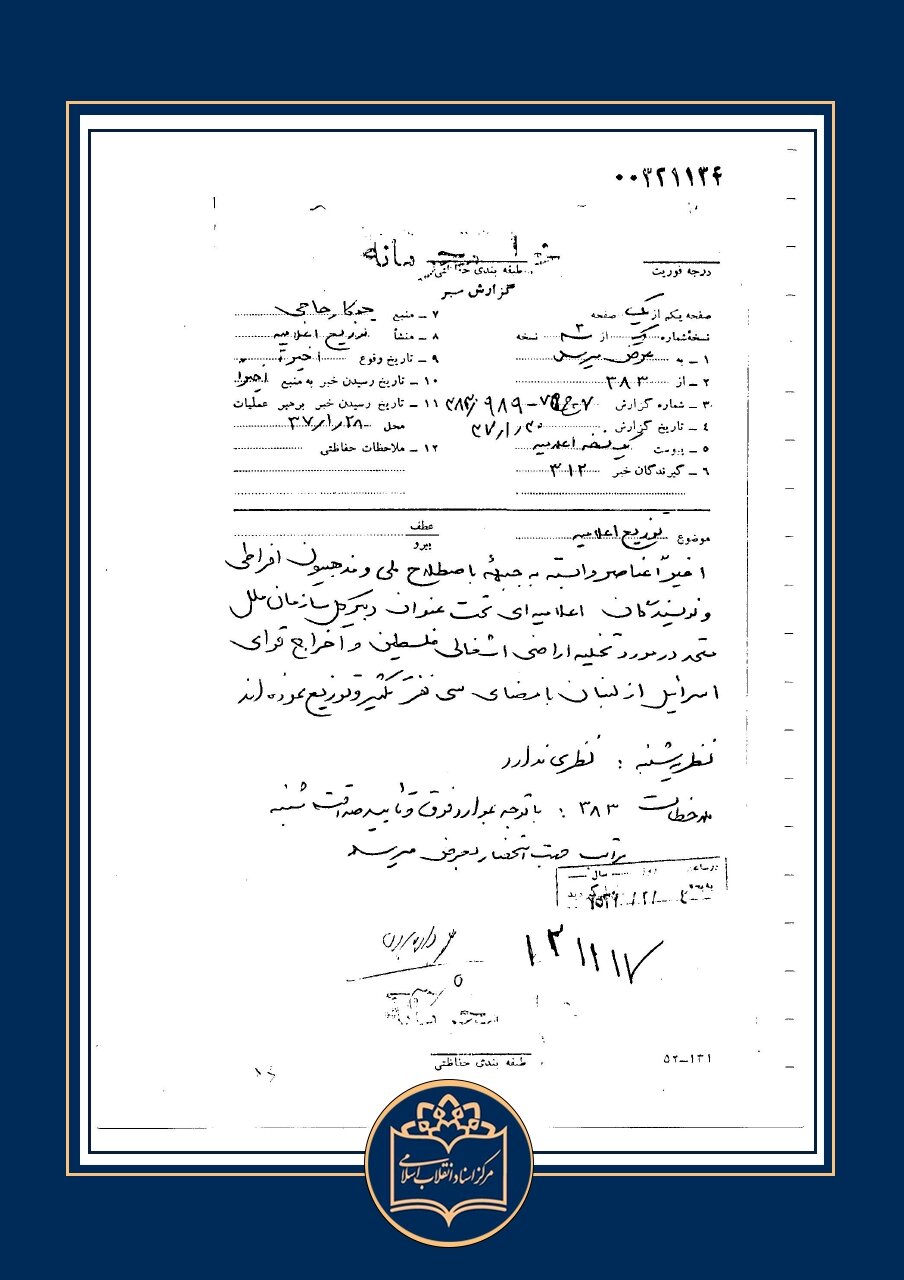 ۰۰۳۲۱۱۳۶
درجه فوریت
طبقه بندی حفاظتی
گزارش خبر
صفحه یکم از یک صفحه
نسخهٔ شماره یک از ۳ نسخه
۱ ـ به عرض میرسد
۲ ـ از ۳۸۳
۳ ـ شماره گزارش
۴ ـ تاریخ گزارش ۳۷/۱/۳۰
۵ ـ پیوست یک نسخه اعلامیه
۶ ـ گیرندگان خبر ۳۱۲
۷ ـ منبع
۸ ـ منشأ توزیع اعلامیه
۹ ـ تاریخ وقوع اخیراً
۱۰ ـ تاریخ رسیدن خبر به منبع اخیراً
۱۱ ـ تاریخ رسیدن خبر برهبر عملیات
محل ۳۷/۱/۲۸
۱۲ ـ ملاحظات حفاظتی
موضوع توزیع اعلامیه
عطف
پیرو
اخیراً عناصر وابسته به جبهه باصطلاح ملی و مذهبیون افراطی
و نویسندگان اعلامیه‌ای تحت عنوان دبیرکل سازمان ملل
متحد در مورد تخلیه اراضی اشغالی فلسطین و اخراج قوای
اسرائیل از لبنان با مضای سی نفر تکثیر و توزیع نموده اند
نظریه شنبه : نظری ندارد
ملاحظات ۳۸۳ : با توجه بموارد فوق و تأیید صداقت شنبه
مراتب جهت استحضار بعرض میرسد
سال
طبقه بندی حفاظتی
۵۲ـ۱۳۱
مرکز اسناد انقلاب اسلامی